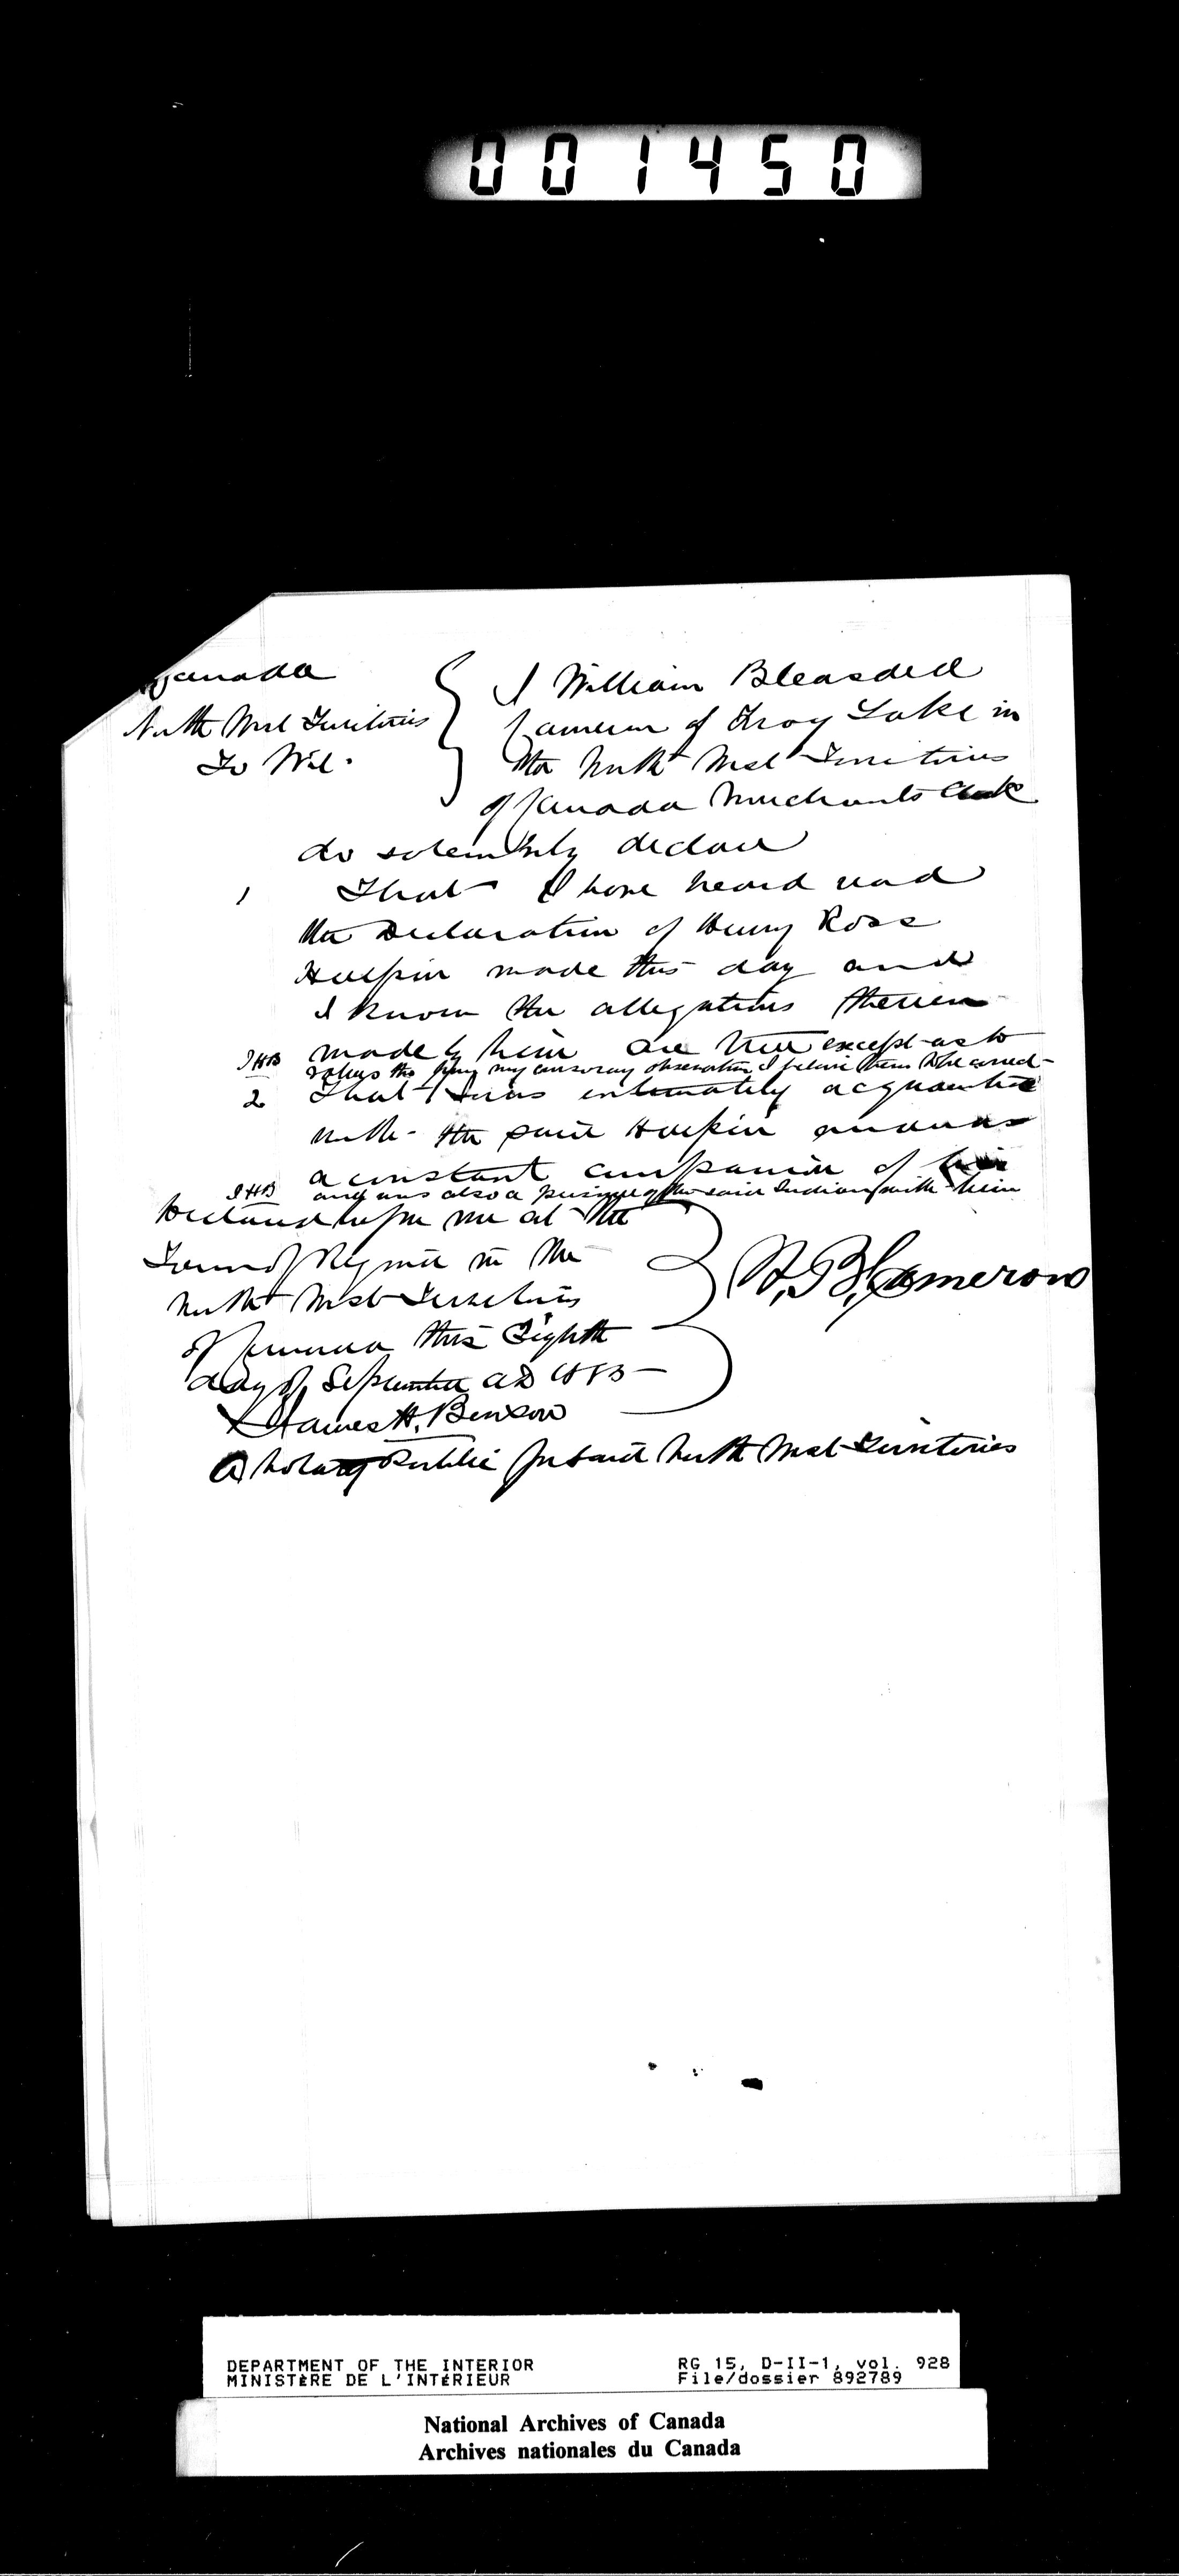 001450
Canada
North West Territories
To Wit.
I William Bleasdell
Cameron of Frog Lake in
the North West Territories
of Canada Merchants Clerk
do solemnly declare
1 That I have heard read
the Declaration of Henry Ross
Halpin made this day and
I know the allegations therein
JHB made by him are true except as to
values tho from my cursoray observation I believe them to be correct
2 That I was intimately acquainted
with the said Halpin and was
a constant companion of his
JHB and was also a prisoner of the said Indians with him
Declared before me at the
Town of Regina in the
North West Territories
of Canada this Eighth
day of September AD 1885
W. B. Cameron
James H. Benson
A Notary Public for said North West Territories
DEPARTMENT OF THE INTERIOR
MINISTÈRE DE L'INTÉRIEUR
RG 15, D-II-1, vol. 928
File/dossier 892789
National Archives of Canada
Archives nationales du Canada